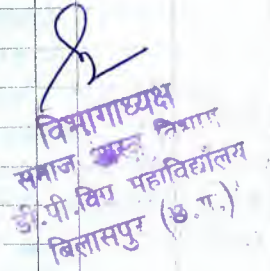 विभागाध्यक्ष
समाज विभाग
.पी.विप्र महाविद्यालय
बिलासपुर (छ.ग.)